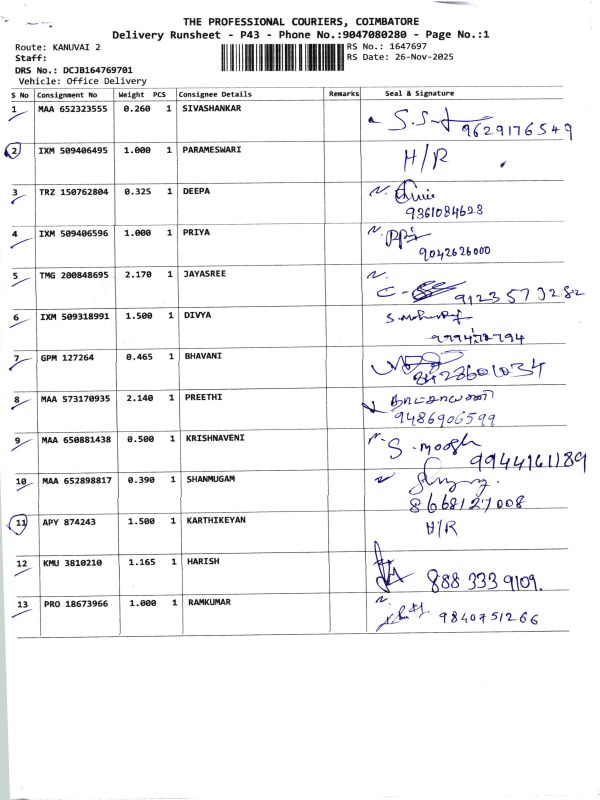 THE PROFESSIONAL COURIERS, COIMBATORE
Delivery Runsheet - P43 - Phone No.:9047080280 - Page No.:1
Route: KANUVAI 2 RS No.: 1647697
Staff: RS Date: 26-Nov-2025
DRS No.: DCJB164769701
Vehicle: Office Delivery
S No Consignment No Weight PCS Consignee Details Remarks Seal & Signature
1 MAA 652323555 0.260 1 SIVASHANKAR
9629176549
2 IXM 509406495 1.000 1 PARAMESWARI H/R
3 TRZ 150762804 0.325 1 DEEPA
9361084628
4 IXM 509406596 1.000 1 PRIYA
9042626000
5 TMG 200848695 2.170 1 JAYASREE
9123573282
6 IXM 509318991 1.500 1 DIVYA
7 GPM 127264 0.465 1 BHAVANI
8 MAA 573170935 2.140 1 PREETHI
9486906599
9 MAA 650881438 0.500 1 KRISHNAVENI
9944161189
10 MAA 652898817 0.390 1 SHANMUGAM
8668127008
11 APY 874243 1.500 1 KARTHIKEYAN H/R
12 KMU 3810210 1.165 1 HARISH
888 333 9109.
13 PRO 18673966 1.000 1 RAMKUMAR
9840751266